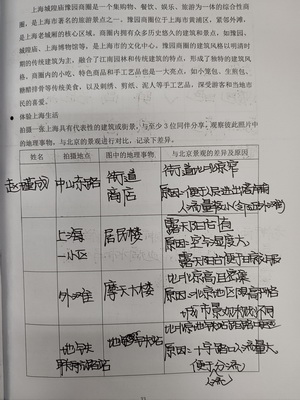 上海城隍庙豫园商圈是一个集购物、餐饮、娱乐、旅游为一体的综合性商
圈，是上海市著名的旅游景点之一。豫园商圈位于上海市黄浦区，紧邻外滩，
是上海老城厢的核心区域。商圈内拥有众多历史悠久的建筑和景点，如豫园、
城隍庙、上海博物馆等，是上海市的文化中心。豫园商圈的建筑风格以明清时
期的传统建筑为主，融合了江南园林和传统建筑的特点，形成了独特的建筑风
格。商圈内的小吃、特色商品和手工艺品也是一大亮点，如小笼包、生煎包、
糖醋排骨等传统美食，以及刺绣、剪纸、泥人等手工艺品，深受游客和当地市
民的喜爱。
体验上海生活
拍摄一张上海具有代表性的建筑或街景，与至少3位同伴分享，观察彼此照片中
的地理事物，与北京的景观进行对比，记录下差异。
姓名 拍摄地点 图中的地理事物 与北京景观的差异及原因
中山东路 街道 街道比北京窄
商店 原因:便于人民进出商铺
上海 居民楼 露天阳台
一小区 原因:空气湿度大
露天阳台便于
外滩 摩天大楼 比北京高且密集
原因:北京地区限高
地铁
原因:十字路口人流量大
便于分流